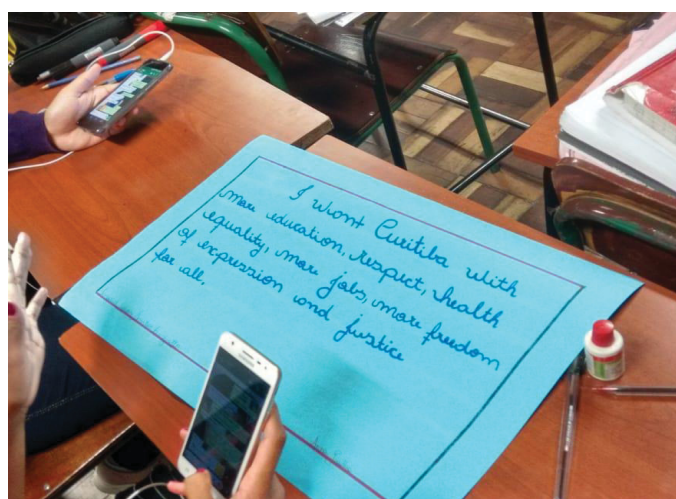 I want Curitiba with
more education, respect, health
equality, more jobs, more freedom
of expression and justice
for all.